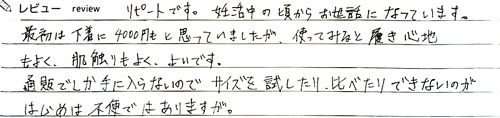 レビュー review リピートです。妊活中の頃からお世話になっています。
最初は下着に4000円もと思っていましたが、使ってみると履き心地
もよく、肌触りもよく、よいです。
通販でしか手に入らないのでサイズを試したり、比べたりできないのが
はじめは不便ではありますが。